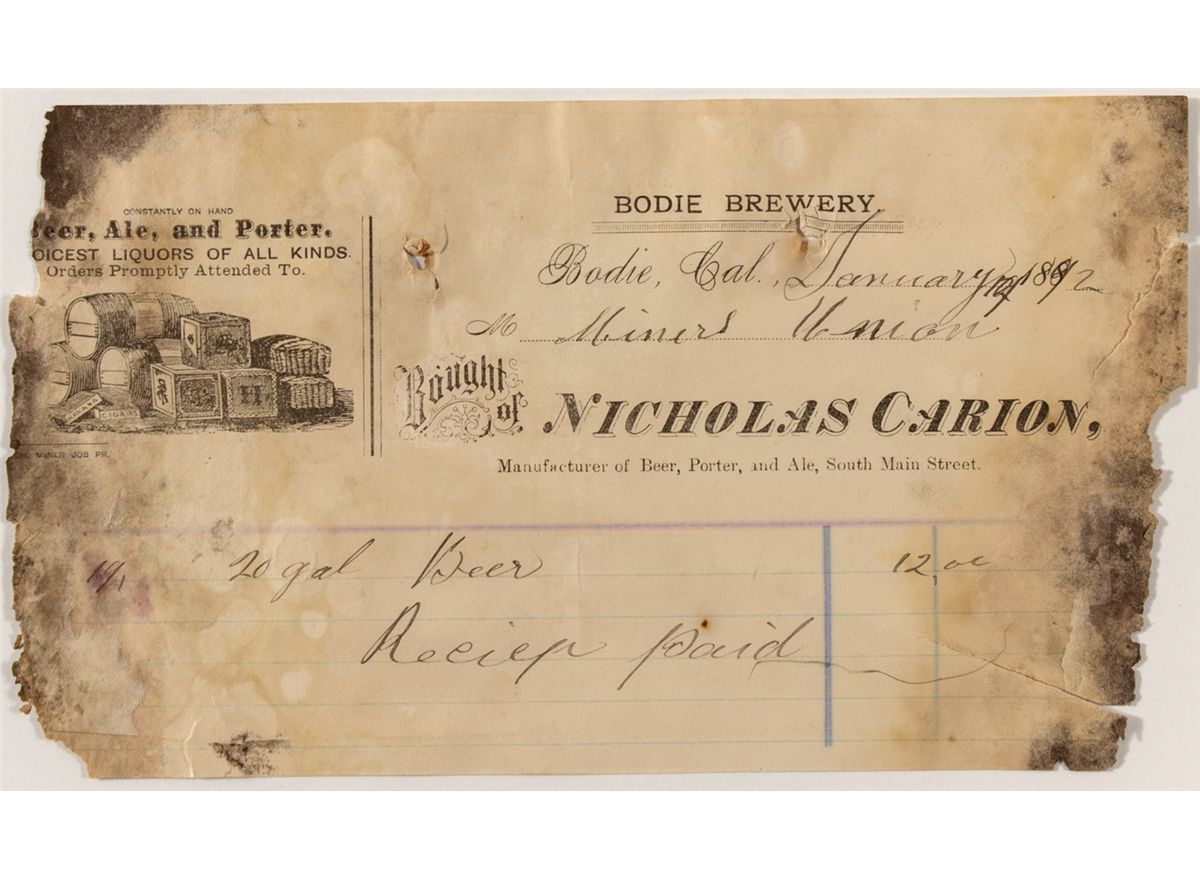 CONSTANTLY ON HAND
Beer, Ale, and Porter.
OICEST LIQUORS OF ALL KINDS.
Orders Promptly Attended To.
CIGARS
MINER JOB PR.
BODIE BREWERY.
Bodie, Cal., January 1892
M Miners Union
Bought of NICHOLAS CARION,
Manufacturer of Beer, Porter, and Ale, South Main Street.
20 gal Beer 12,00
Reciep paid